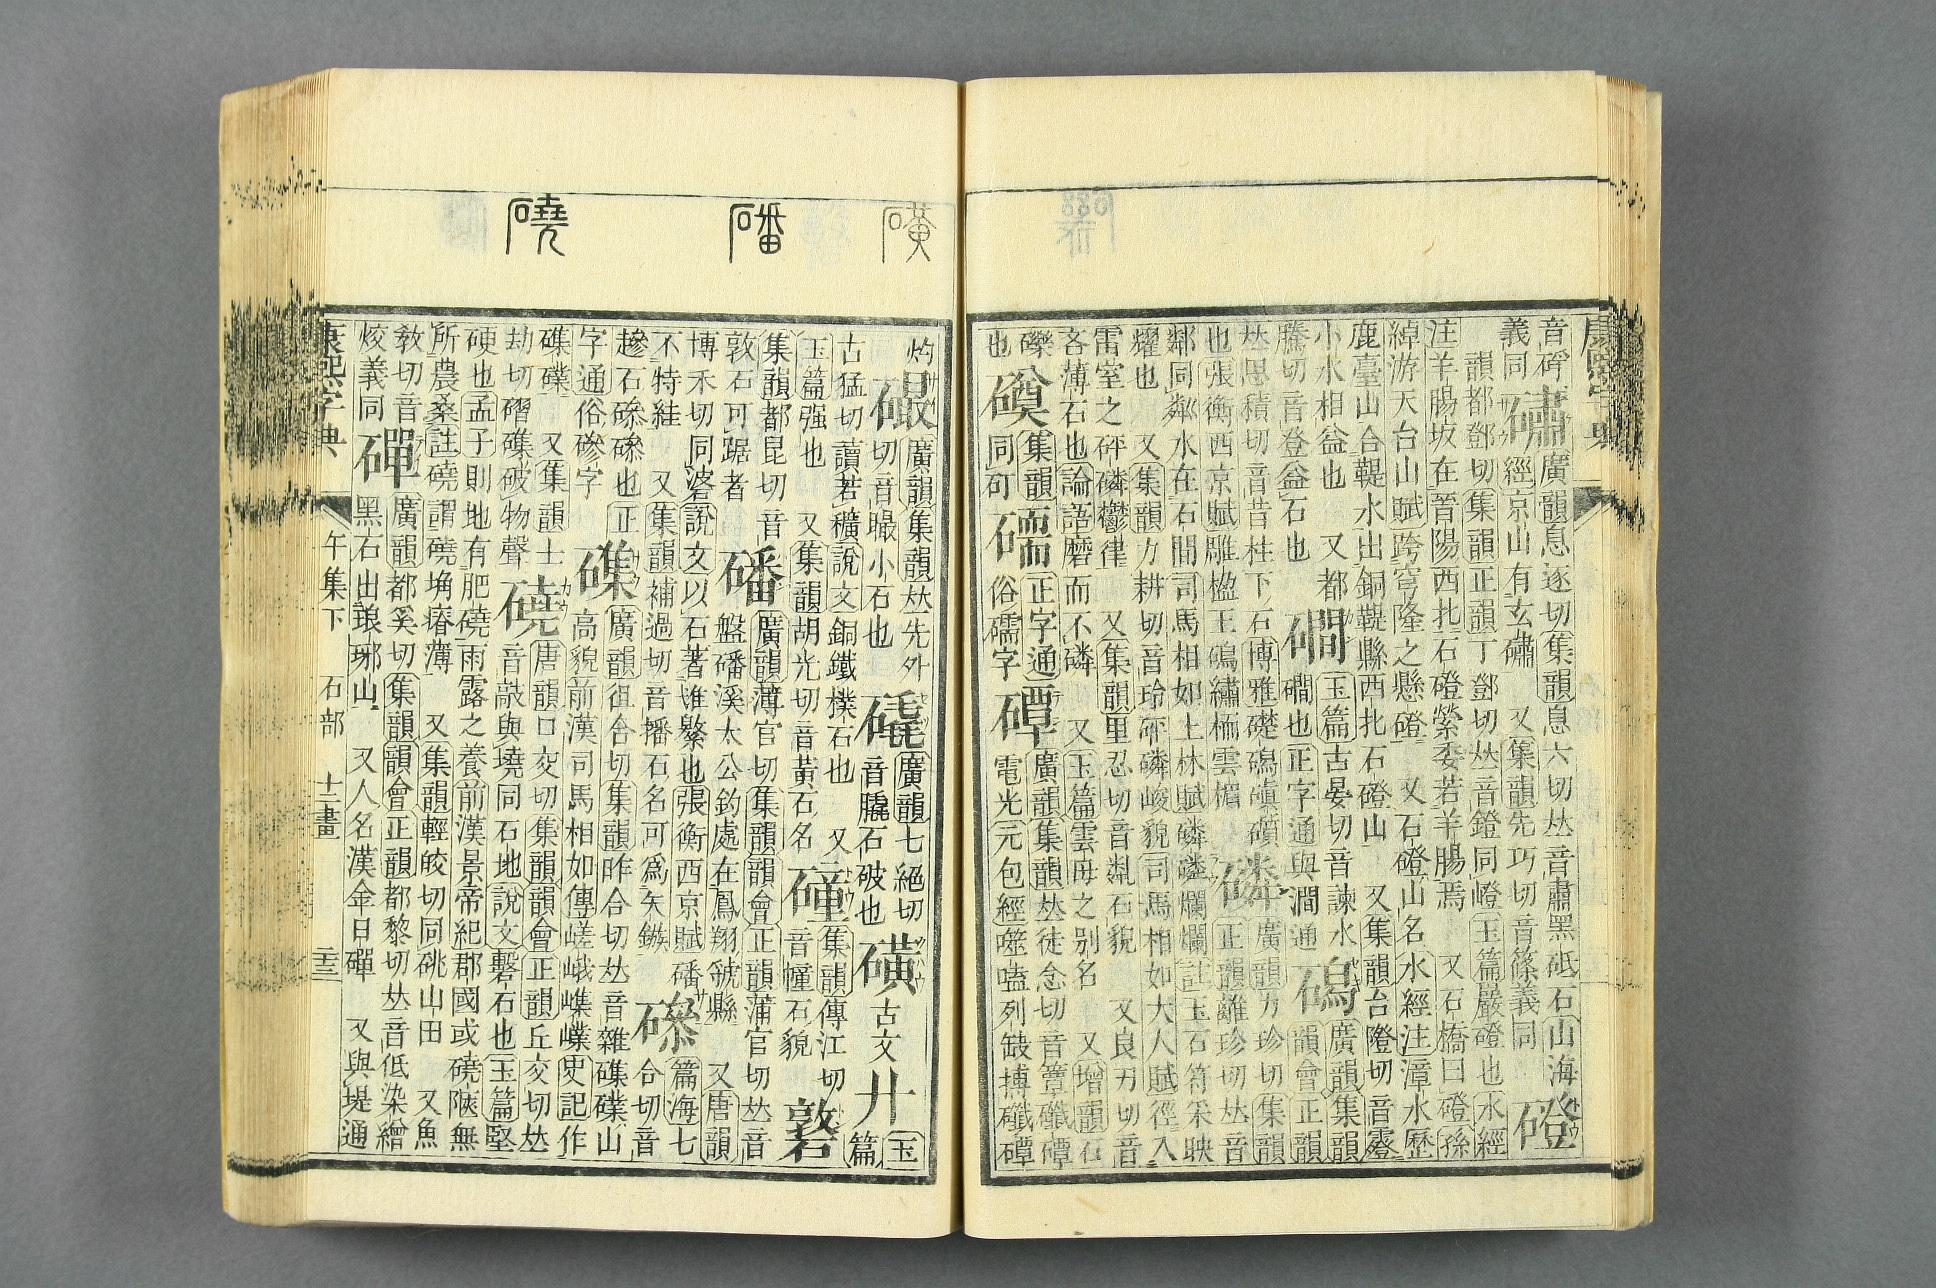 康熙字典
音碑 䃤 廣韻息逐切集韻息六切𠀤音肅黑砥石山海
義同 經京山有玄䃤 又集韻先巧切音篠義同 磴
韻都鄧切集韻正韻丁鄧切𠀤音鐙同嶝玉篇巖磴也水經
注羊腸坂在晉陽西北石磴縈委若羊腸焉 又石橋曰磴孫
綽游天台山賦跨穹隆之懸磴 又石磴山名水經注漳水歷
鹿臺山合鞮水出銅鞮縣西北石磴山 又集韻台隥切音霯
小水相益也 又都 磵 玉篇古晏切音諫水 磶 廣韻集韻
騰切音登益石也 磵也正字通與澗通 韻會正韻
𠀤思積切音昔柱下石博雅礎磶磌礩 磷 廣韻力珍切集韻
也張衡西京賦雕楹玉磶繡栭雲楣 正韻離珍切𠀤音
鄰同粼水在石間司馬相如上林賦磷磷爛爛註玉石符采映
耀也 又集韻力耕切音玲砰磷峻貌司馬相如大人賦徑入
雷室之砰磷鬱律 又集韻里忍切音嶙石貌 又良刃切音
吝薄石也論語磨而不磷 又玉篇雲母之别名 又增韻石
礫 集韻 碝 正字通 磹 廣韻集韻𠀤徒念切音簟礥磹
也 同 俗礝字 電光元包經噬嗑列缺搏礥磹
磺
磻
磽
灼 廣韻集韻𠀤先外 廣韻七絕切 磺 古文 卝 玉
切音 小石也 音膬石破也 篇
古猛切讀若穬說文銅鐵樸石也 又 䃥 集韻傳江切
玉篇强也 又集韻胡光切音黃石名 音幢石貌 磝
集韻都昆切音 磻 廣韻薄官切集韻韻會正韻蒲官切𠀤音
敦石可踞者 盤磻溪太公釣處在鳳翔虢縣 又唐韻
博禾切同碆說文以石著隿繁也張衡西京賦磻 磣 篇海七
不特絓 又集韻補過切音播石名可爲矢鏃 合切音
趁石磣磣也正 磼 廣韻徂合切集韻昨合切𠀤音雜磼礏山
字通俗磣字 高貌前漢司馬相如傳嵯峨磼礏史記作
磼礏 又集韻士 磽 唐韻口交切集韻韻會正韻丘交切𠀤
劫切磖磼破物聲 音敲與墝同石地說文磬石也玉篇堅
硬也孟子則地有肥磽雨露之養前漢景帝紀郡國或磽陿無
所農桑註磽謂磽埆瘠薄 又集韻輕皎切同硗山田 又魚
敎切音 磾 廣韻都奚切集韻韻會正韻都黎切𠀤音低染繒
烄義同 黑石出琅琊山 又人名漢金日磾 又與堤通
康熙字典 午集下 石部 十二畫